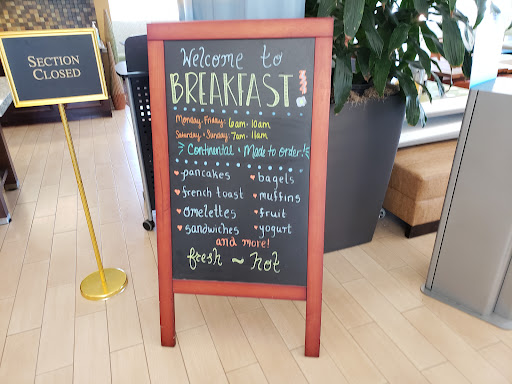 SECTION
CLOSED
Welcome to
BREAKFAST!
Monday-Friday: 6am-10am
Saturday-Sunday: 7am-11am
Continental • Made to order!
pancakes
french toast
omelettes
sandwiches
bagels
muffins
fruit
yogurt
and more!
fresh ~ hot